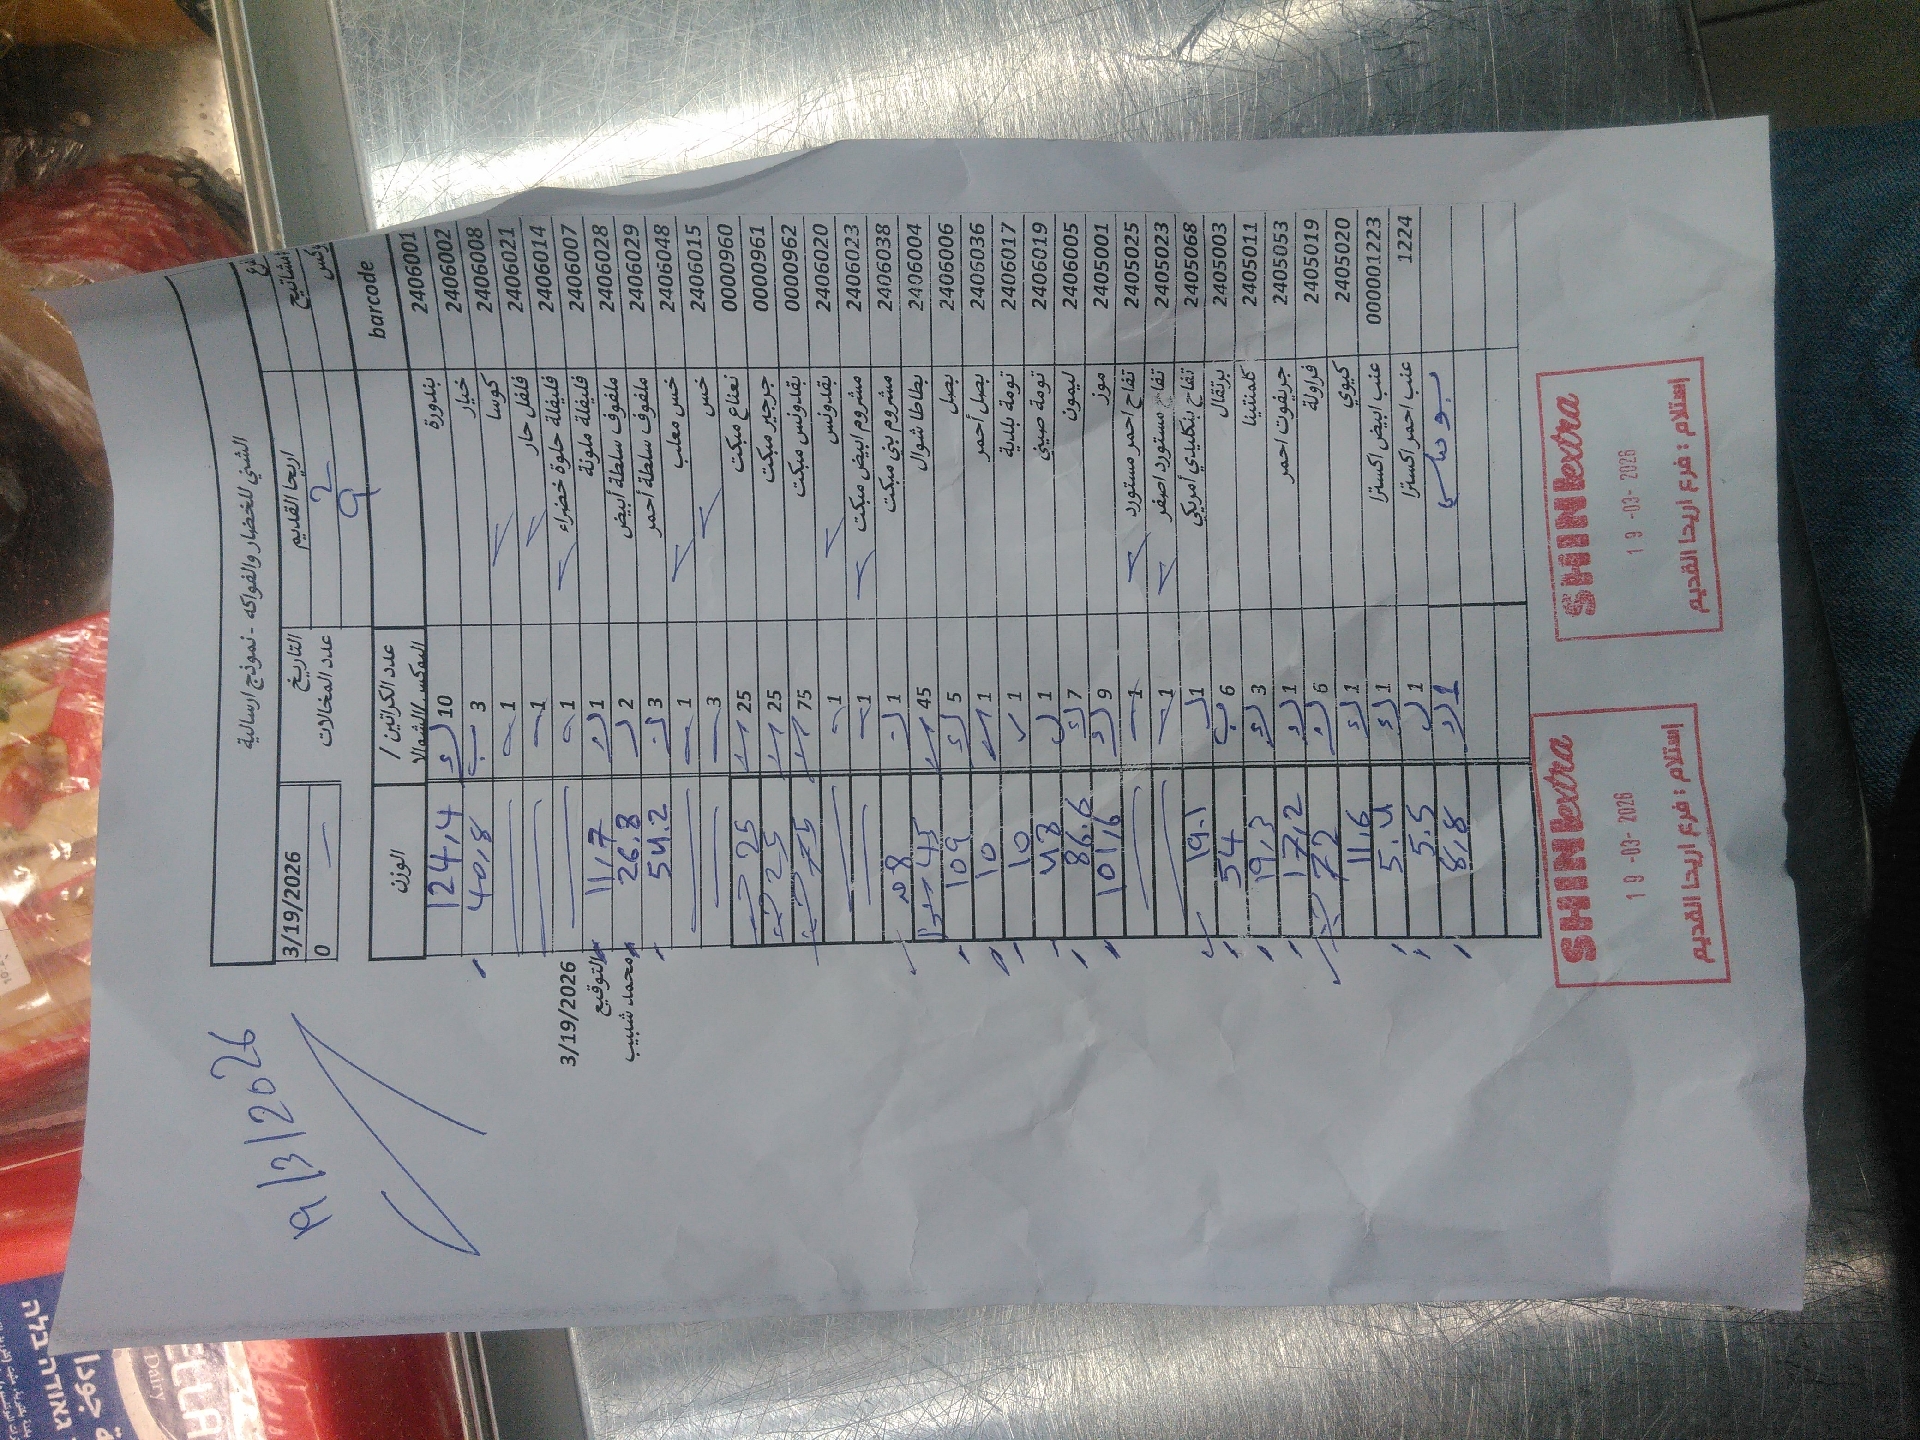 الشني للخضار والفواكه - نموذج ارسالية
اريحا القديم التاريخ 3/19/2026
عدد المخالفات 0
9
barcode عدد الكراتين / البوكس/الشوال الوزن
2406001 بندورة 10 124,4
2406002 خيار 3 40,8
2406008 كوسا 1
2406021 فلفل حار 1
2406014 فليفلة حلوة خضراء 1
2406007 فليفلة ملونة 1 11,7
2406028 ملفوف سلطة أبيض 2 26.8
2406029 ملفوف سلطة أحمر 3 54.2
2406048 خس معلب 1
2406015 خس 3
0000960 نعناع مبكت 25 25
0000961 جرجير مبكت 25 25
0000962 بقدونس مبكت 75 75
2406020 بقدونس 1
2406023 مشروم ابيض مبكت 1
2406038 مشروم بني مبكت 1 8
2406004 بطاطا شوال 45 45
2406006 بصل 5 109
2406036 بصل أحمر 1 10
2406017 تومة بلدية 1 10
2406019 تومة صيني 1 4.8
2406005 ليمون 7 86.6
2405001 موز 9 101,6
2405025 تفاح احمر مستورد 1
2405023 تفاح مستورد اصفر 1
2405068 تفاح بنكليدي أمريكي 1 19.1
2405003 برتقال 6 54
2405011 كلمنتينا 3 19,3
2405053 جريفوت احمر 1 17,2
2405019 فراولة 6 72
2405020 كيوي 1 11,6
0000001223 عنب ابيض اكسترا 1 5.4
1224 عنب احمر اكسترا 1 5.5
بوملي 1 8,8
3/19/2026
التوقيع
محمد شبيب
19/3/2026
SHINI extra
19-03-2026
إستلام : فرع اريحا القديم
SHINI extra
19-03-2026
إستلام : فرع اريحا القديم
جودا
גאודה בלה
ELLA
Dairy